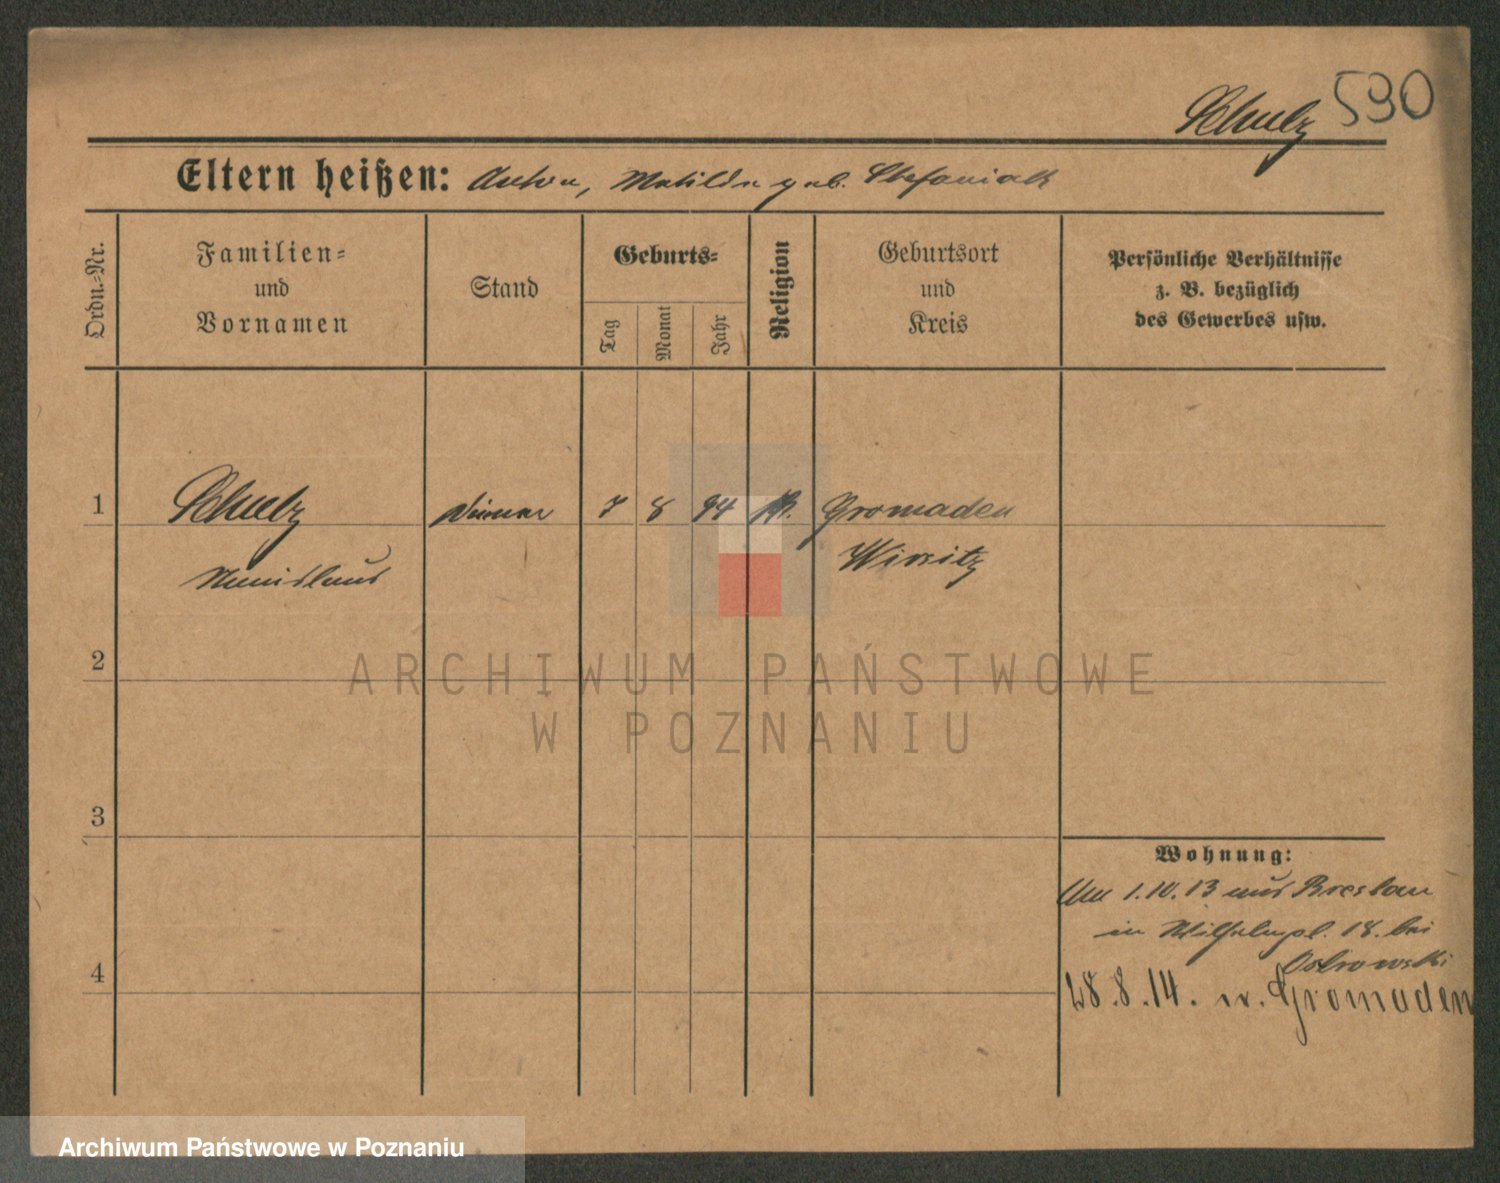 Schulz 590
Eltern heißen: Anton, Matilda geb. Stefaniak
Ordn.-Nr.
Familien-
und
Vornamen
Stand
Geburts-
Tag
Monat
Jahr
Religion
Geburtsort
und
Kreis
Persönliche Verhältnisse
z. B. bezüglich
des Gewerbes usw.
1 Schulz Diener 7 8 94 k. Gromaden
Wirsitz
2
ARCHIWUM PAŃSTWOWE
W POZNANIU
3
Wohnung:
Am 1.10.13 aus Breslau
in Wilhelmpl. 18. bei
Ostrowski
4
28.8.14. n. Gromaden
Archiwum Państwowe w Poznaniu